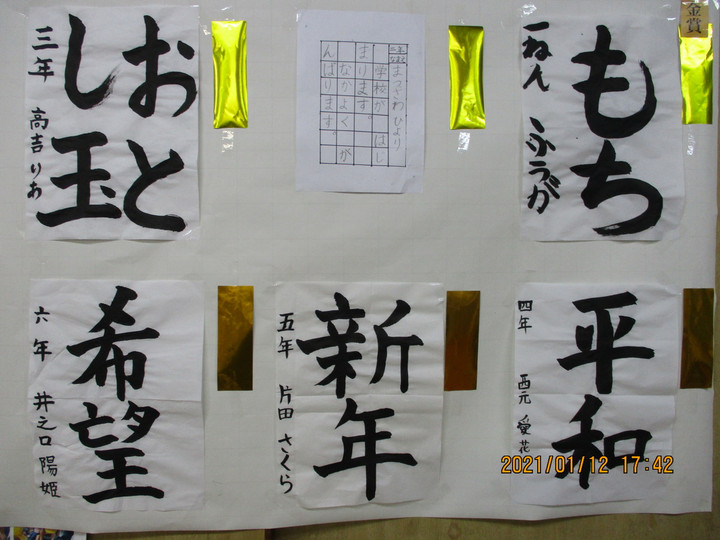 金賞
もち
一ねん ふうが
二年
まつざわ ひより
学校が はじ
まります。
なかよく が
んばります。
おと
し玉
三年 高吉 りお
平和
四年 西元 愛花
新年
五年 片田 さくら
希望
六年 井之口 陽姫
2021/01/12 17:42